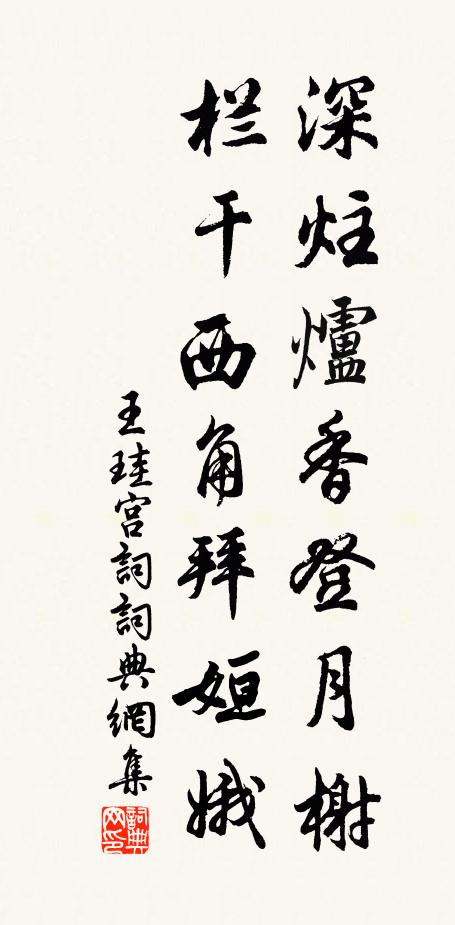 深炷爐香登月榭
栏干西角拜姮娥
王珪宫詞詞典網集
詞典网印